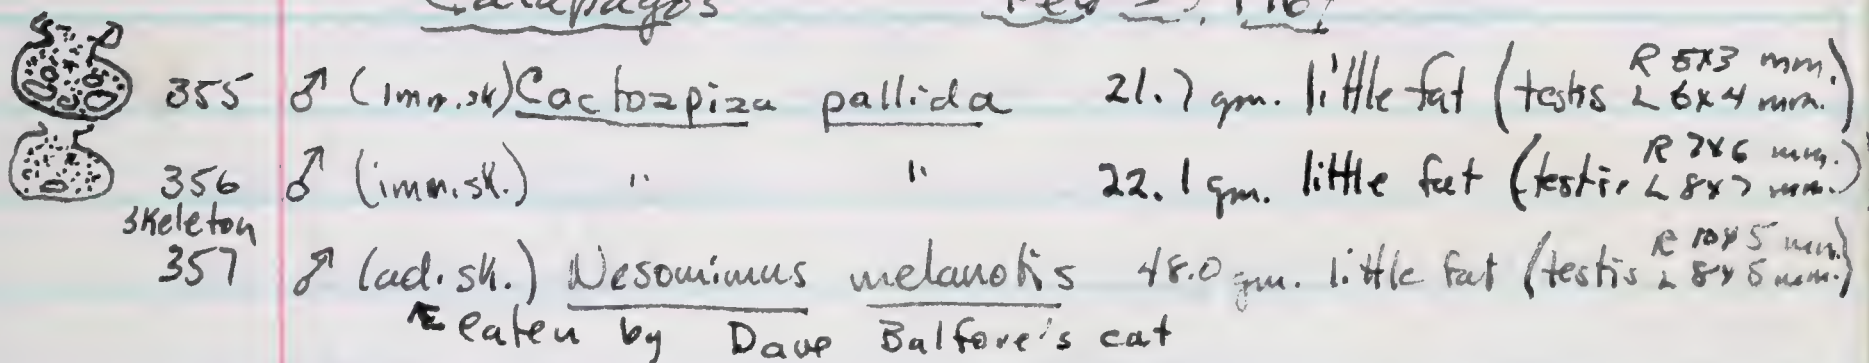 Galápagos
355 ♂ (imm.sk) Cactospiza pallida 21.7 gm. little fat (testis R 5x3 mm. L 6x4 mm.)
356 ♂ (imm.sk.) " " 22.1 gm. little fat (testis R 7x6 mm. L 8x7 mm.)
skeleton
357 ♂ (ad.sk.) Nesomimus melanotis 48.0 gm. little fat (testis R 10x5 mm. L 8x5 mm.)
eaten by Dave Balfore's cat